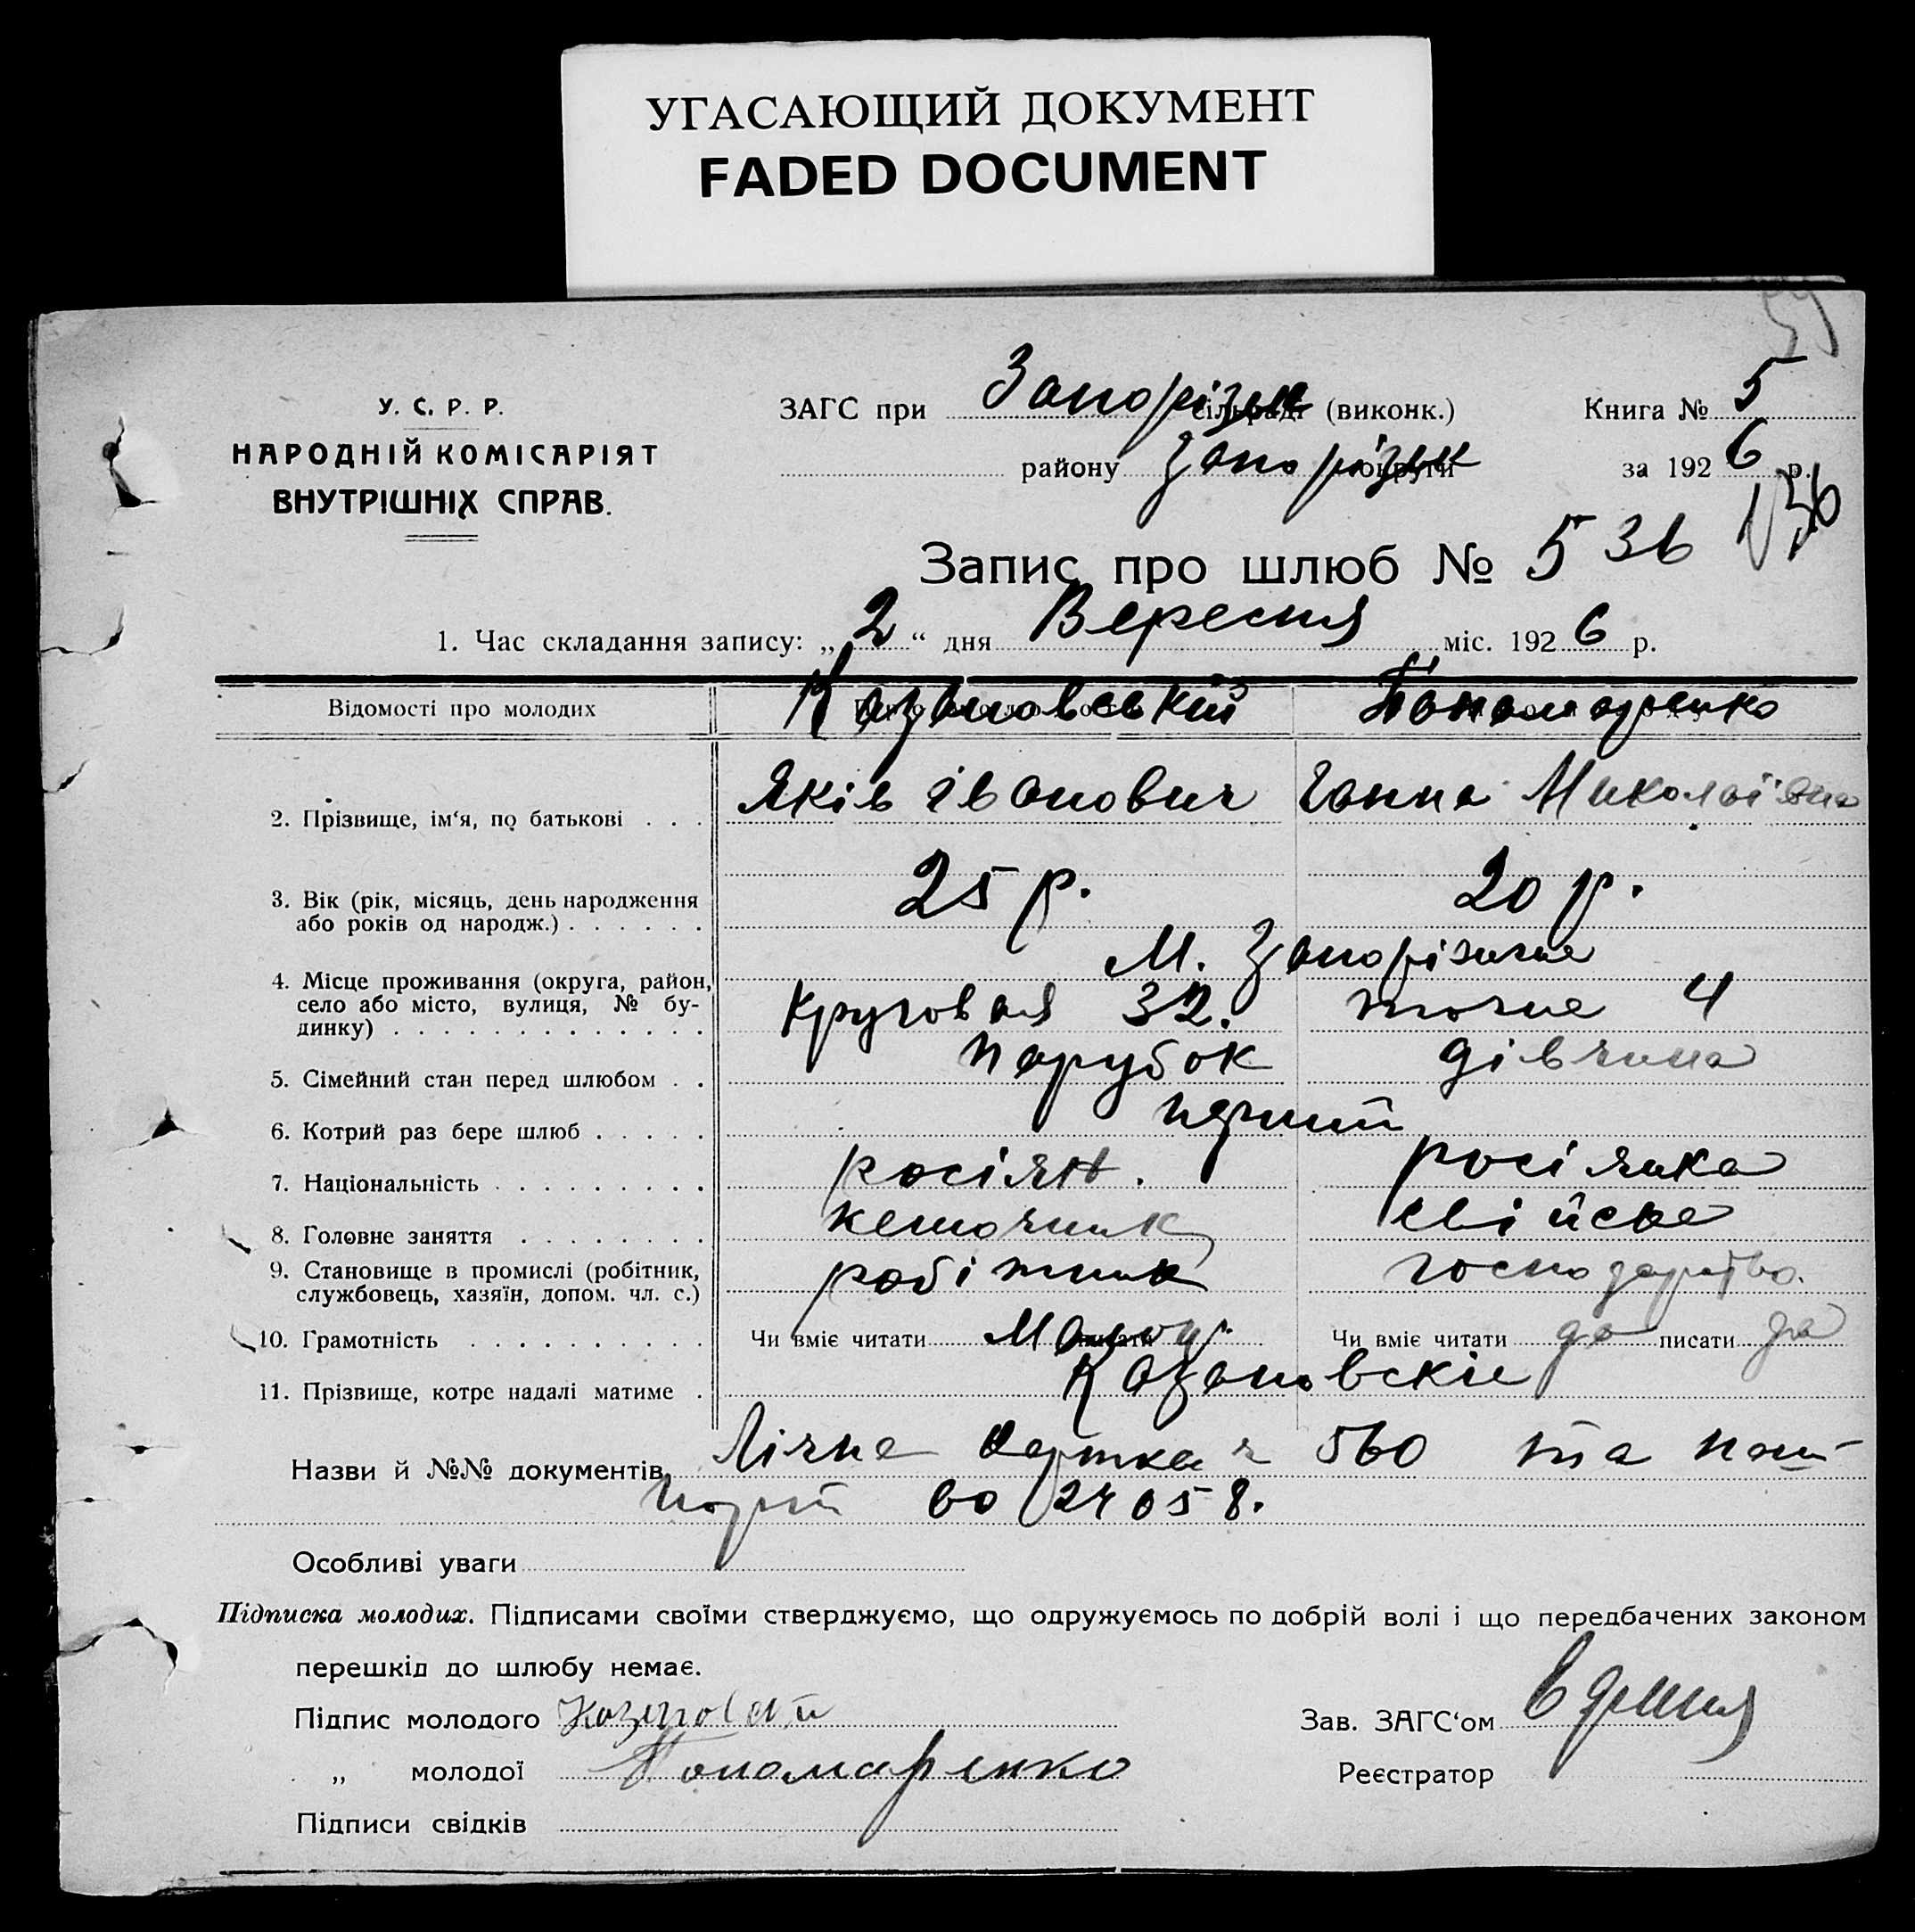 УГАСАЮЩИЙ ДОКУМЕНТ
FADED DOCUMENT
У. С. Р. Р.
НАРОДНІЙ КОМІСАРІЯТ
ВНУТРІШНІХ СПРАВ.
ЗАГС при Запорізьк сільраді (виконк.)
Книга № 5
району Запорізьк округи
за 1926 р.
Запис про шлюб № 536
1. Час складання запису: „2“ дня Вересня міс. 1926 р.
Відомості про молодих Казановський Пономаренко
2. Прізвище, ім'я, по батькові . . . Яків Іванович Ганна Миколаївна
3. Вік (рік, місяць, день народження 25 р. 20 р.
або років од народж.) . . . . . .
М. Запоріжжє
4. Місце проживання (округа, район,
село або місто, вулиця, № бу- Круговая 32. тоже 4
динку) . . . . . . . . . . . . .
5. Сімейний стан перед шлюбом . . парубок дівчина
6. Котрий раз бере шлюб . . . . . перший
7. Національність . . . . . . . . . росіян. росіянка
8. Головне заняття . . . . . . . . свійське
9. Становище в промислі (робітник, робітник господарство.
службовець, хазяїн, допом. чл. с.)
10. Грамотність . . . . . . . . . . Чи вміє читати писати Чи вміє читати да писати да
11. Прізвище, котре надалі матиме . Казановскіе
Назви й №№ документів Лічна картка 560 та паш-
порт 24058.
Особливі уваги
Підписка молодих. Підписами своїми стверджуємо, що одружуємось по добрій волі і що передбачених законом
перешкід до шлюбу немає.
Підпис молодого
Зав. ЗАГС‘ом
„ молодої Пономаренко
Реєстратор
Підписи свідків